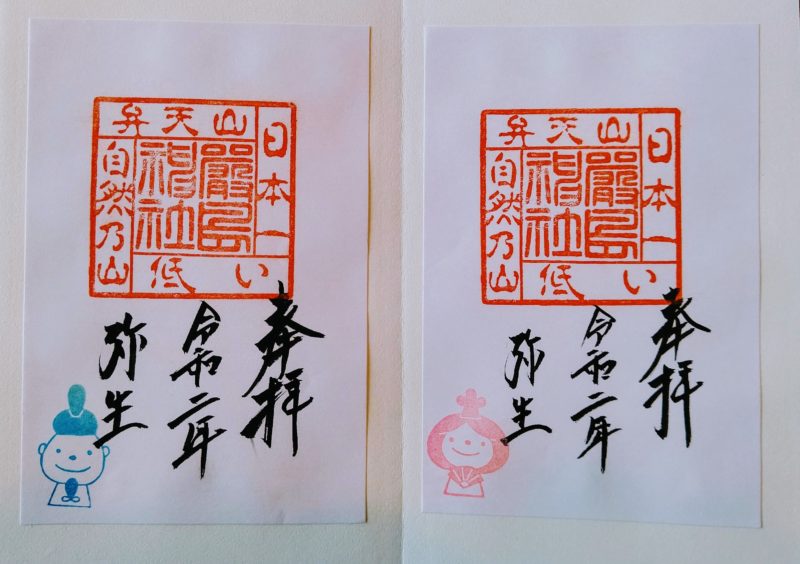 弁天山
日本一
低い
自然乃山
嚴島
神社
奉拝
令和二年
弥生
弁天山
日本一
低い
自然乃山
嚴島
神社
奉拝
令和二年
弥生